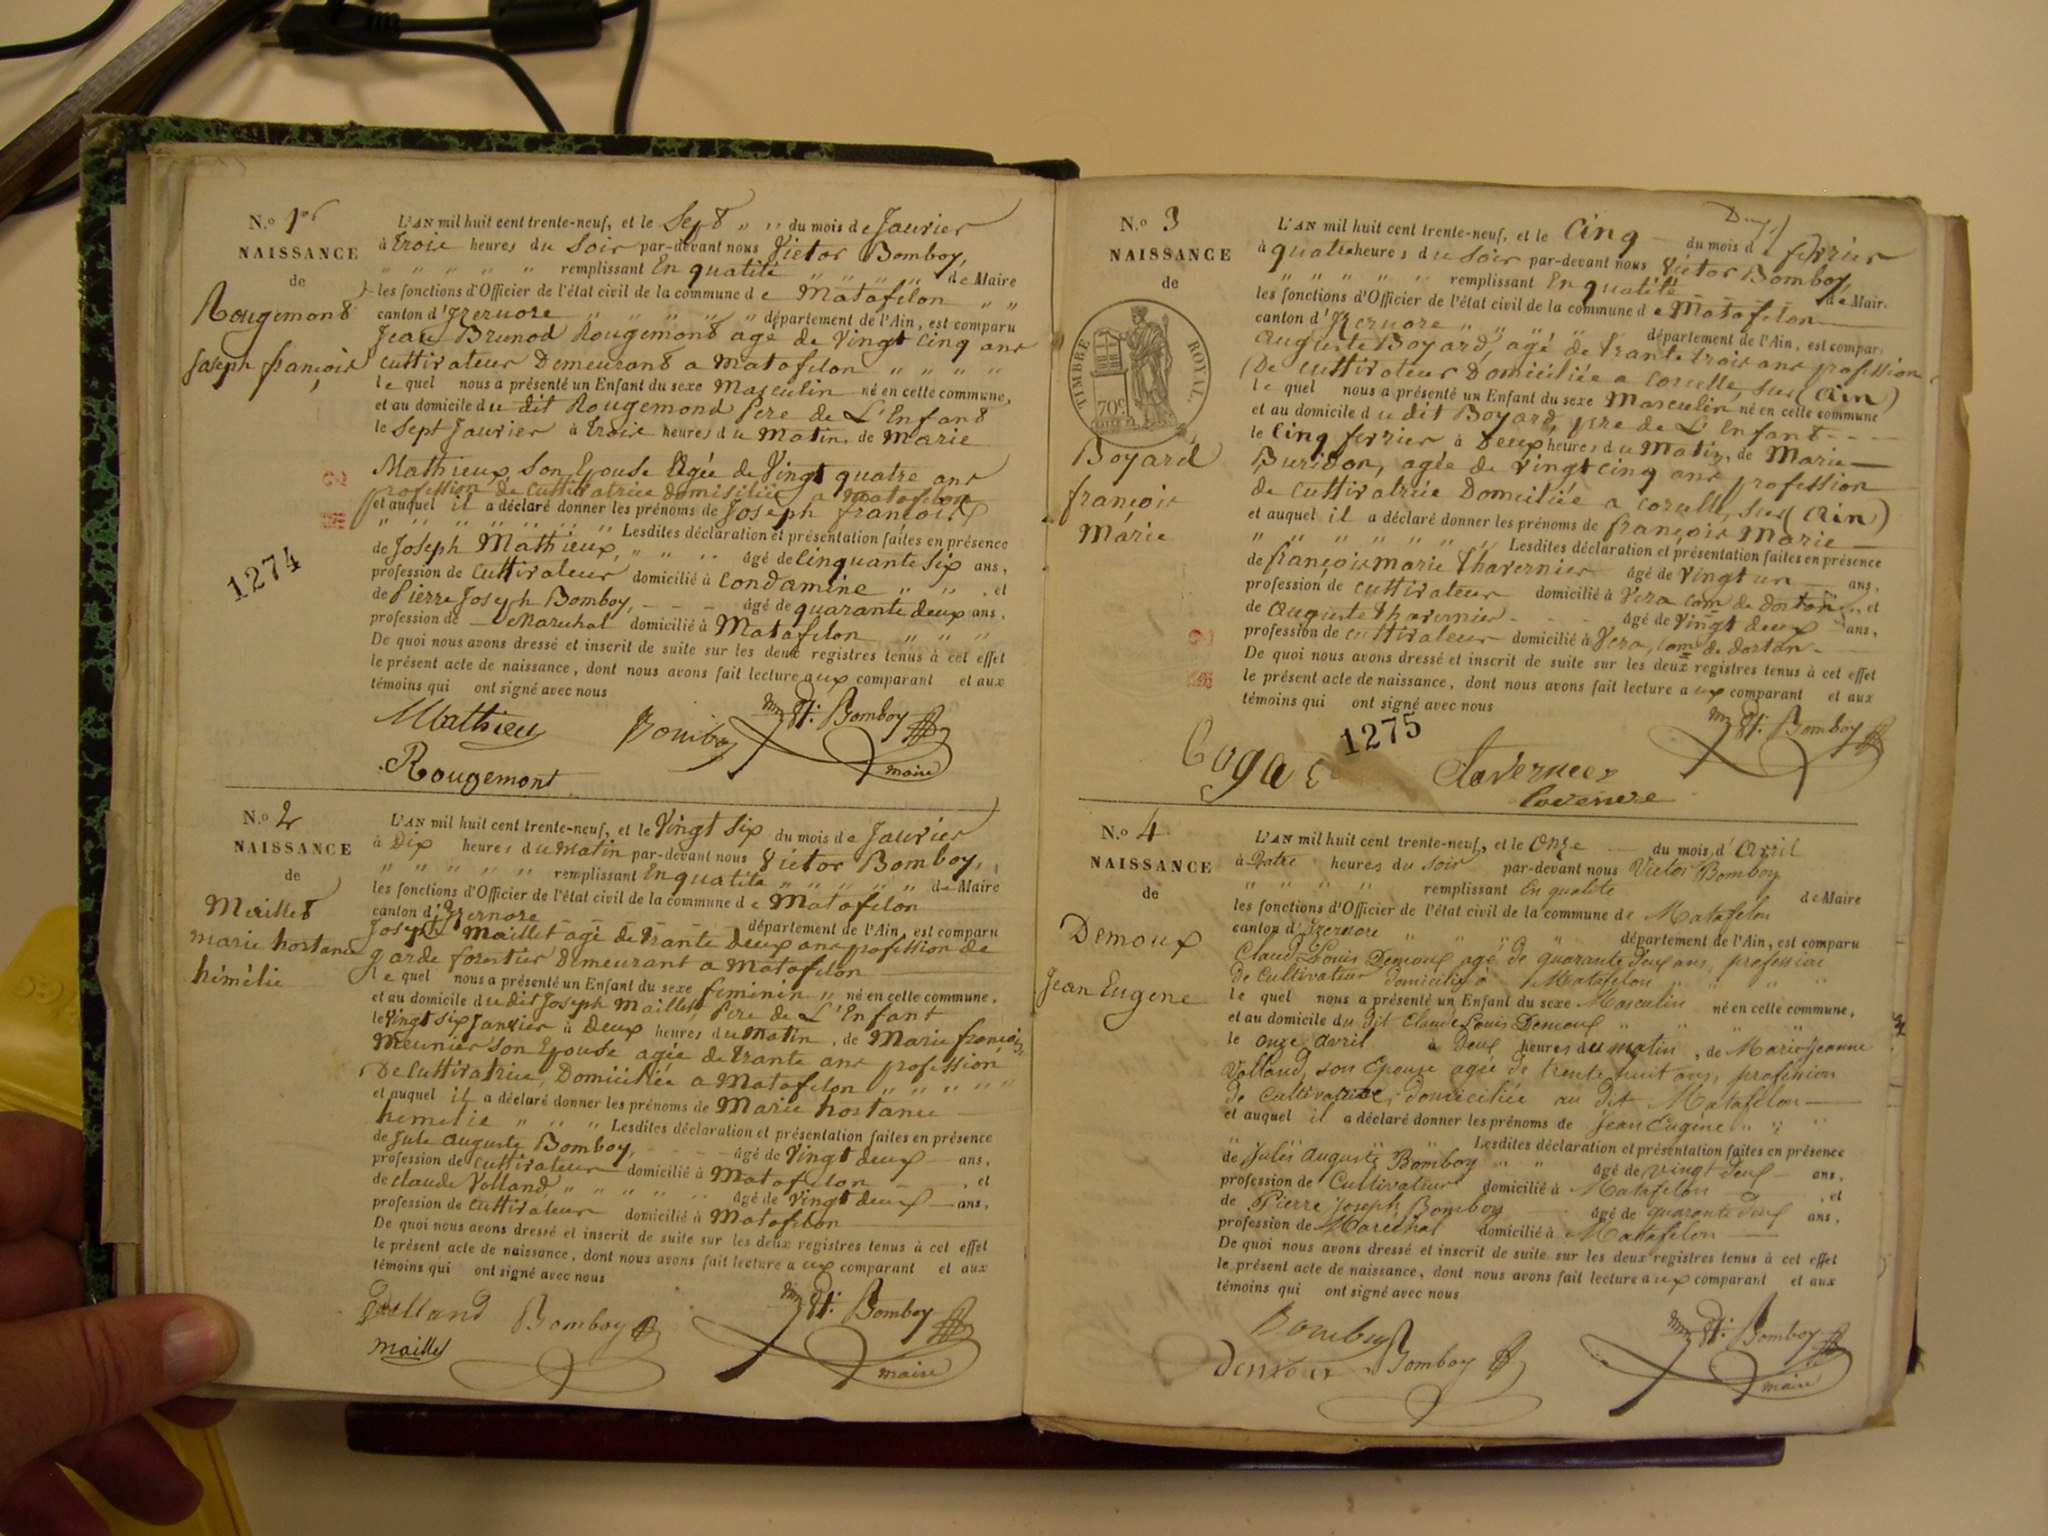 N.o 1er
NAISSANCE
de
Rougemont
Joseph françois
1274
L'AN mil huit cent trente-neuf, et le Sept du mois de Janvier
à trois heures du Soir par-devant nous Victor Bomboy,
remplissant En qualité de Maire
les fonctions d'Officier de l'état civil de la commune de Matafelon
canton d'Izernore département de l'Ain, est comparu
Jean Brunod Rougemont agé de Vingt Cinq ans
cultivateur Demeurant a matafelon
lequel nous a présenté un Enfant du sexe Masculin né en cette commune,
et au domicile du dit Rougemond Pere de L'Enfant
le Sept Janvier à trois heures du Matin, de Marie
Mathieux Son Epouse Agée de Vingt quatre ans
profession de cultivatrice domisiliée a matafelon
et auquel il a déclaré donner les prénoms de Joseph françois
Lesdites déclaration et présentation faites en présence
de Joseph Mathieux, âgé de Cinquante Six ans,
profession de cultivateur domicilié à condamine, et
de Pierre Joseph Bomboy, âgé de quarante deux ans,
profession de Marechal domicilié à Matafelon
De quoi nous avons dressé et inscrit de suite sur les deux registres tenus à cet effet
le présent acte de naissance, dont nous avons fait lecture aux comparant et aux
témoins qui ont signé avec nous
Mathieu Bomboy Bomboy
Rougemont maire
N.o 2
NAISSANCE
de
marie hortance
hémélie
L'AN mil huit cent trente-neuf, et le Vingt Six du mois de Janvier
à Dix heures du matin par-devant nous Victor Bomboy,
remplissant En qualité de Maire
les fonctions d'Officier de l'état civil de la commune de Matafelon
canton d'Izernore département de l'Ain, est comparu
Joseph Maillet agé de trante Deux ans profession de
garde forestier Demeurant a Matafelon
lequel nous a présenté un Enfant du sexe feminin né en cette commune,
et au domicile du dit Joseph Maillet, Pere de L'Enfant
le Vingt Six Janvier à Deux heures du Matin, de Marie françoise
Meunier Son Epouse agée de trante ans profession
De Cultivatrice, Domiciliée a Matafelon
et auquel il a déclaré donner les prénoms de Marie hortance
hemelie Lesdites déclaration et présentation faites en présence
de Jule Auguste Bomboy, âgé de Vingt deux ans,
profession de cultivateur domicilié à Matafelon, et
de claude Volland, âgé de Vingt deux ans,
profession de cultivateur domicilié à Matafelon
De quoi nous avons dressé et inscrit de suite sur les deux registres tenus à cet effet
le présent acte de naissance, dont nous avons fait lecture aux comparant et aux
témoins qui ont signé avec nous
Bomboy Bomboy
maillet maire
N.o 3
NAISSANCE
de
TIMBRE ROYAL.
70c
Boyard
françois
Marie
L'AN mil huit cent trente-neuf, et le Cinq du mois de ferrier
à quatre heures du Soir par-devant nous Victor Bomboy,
remplissant En qualité de Mair.
les fonctions d'Officier de l'état civil de la commune de Matafelon
canton d'Izernore département de l'Ain, est compar.
Auguste Boyard, agé de trante trois ans profession
De cultivateur Domiciliée a corcelle, sur (Ain)
lequel nous a présenté un Enfant du sexe Masculin né en cette commune
et au domicile du dit Boyard, pere de L'Enfant
le Cinq ferrier à Deux heures du Matin, de Marie
Buridon, agée de Vingt Cinq ans profession
de cultivatrice Domiciliée a corcelle, sur (Ain)
et auquel il a déclaré donner les prénoms de françois Marie
Lesdites déclaration et présentation faites en présence
de françois marie thavernier âgé de Vingt un ans,
profession de cultivateur domicilié à Vera com de dortan, et
de Auguste thavernier âgé de Vingt deux ans,
profession de cultivateur domicilié à Vera, com de dortan
De quoi nous avons dressé et inscrit de suite sur les deux registres tenus à cet effet
le présent acte de naissance, dont nous avons fait lecture aux comparant et aux
témoins qui ont signé avec nous
1275 Bomboy
N.o 4
NAISSANCE
de
Demoux
Jean Eugène
L'AN mil huit cent trente-neuf, et le Onze du mois d'Avril
à Qatre heures du Soir par-devant nous Victor Bomboy
remplissant En qualité de Maire
les fonctions d'Officier de l'état civil de la commune de Matafelon
canton d'Izernore département de l'Ain, est comparu
Claud Louis Demoux agé de quarante deux ans, profession
de Cultivateur domicilié à Matafelon
lequel nous a présenté un Enfant du sexe Masculin né en cette commune,
et au domicile du dit Claude Louis Demoux
le onze avril à Deux heures du matin, de Marie Jeanne
Volland, son Epouse agée de trente huit ans, profession
de Cultivatrice, domiciliée au dit Matafelon
et auquel il a déclaré donner les prénoms de Jean Eugène
Lesdites déclaration et présentation faites en présence
de Jules Auguste Bomboy âgé de vingt deux ans,
profession de Cultivateur domicilié à Matafelon, et
de Pierre Joseph Bomboy âgé de quarante deux ans,
profession de Maréchal domicilié à Matafelon
De quoi nous avons dressé et inscrit de suite sur les deux registres tenus à cet effet
le présent acte de naissance, dont nous avons fait lecture aux comparant et aux
témoins qui ont signé avec nous
Bomboy Bomboy
demoux Bomboy maire